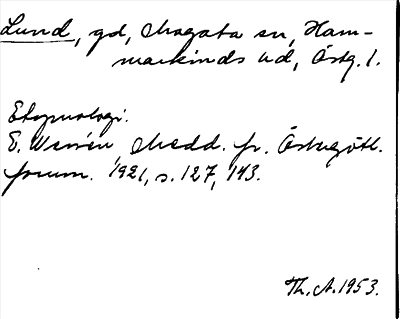 Lund, gd, Mogata sn, Ham-
markinds hd, Östg. l.
Etymologi.
E. Wessén Medd. fr. Östergötl.
fornm. 1921, s. 127, 143.
Th. A. 1953.